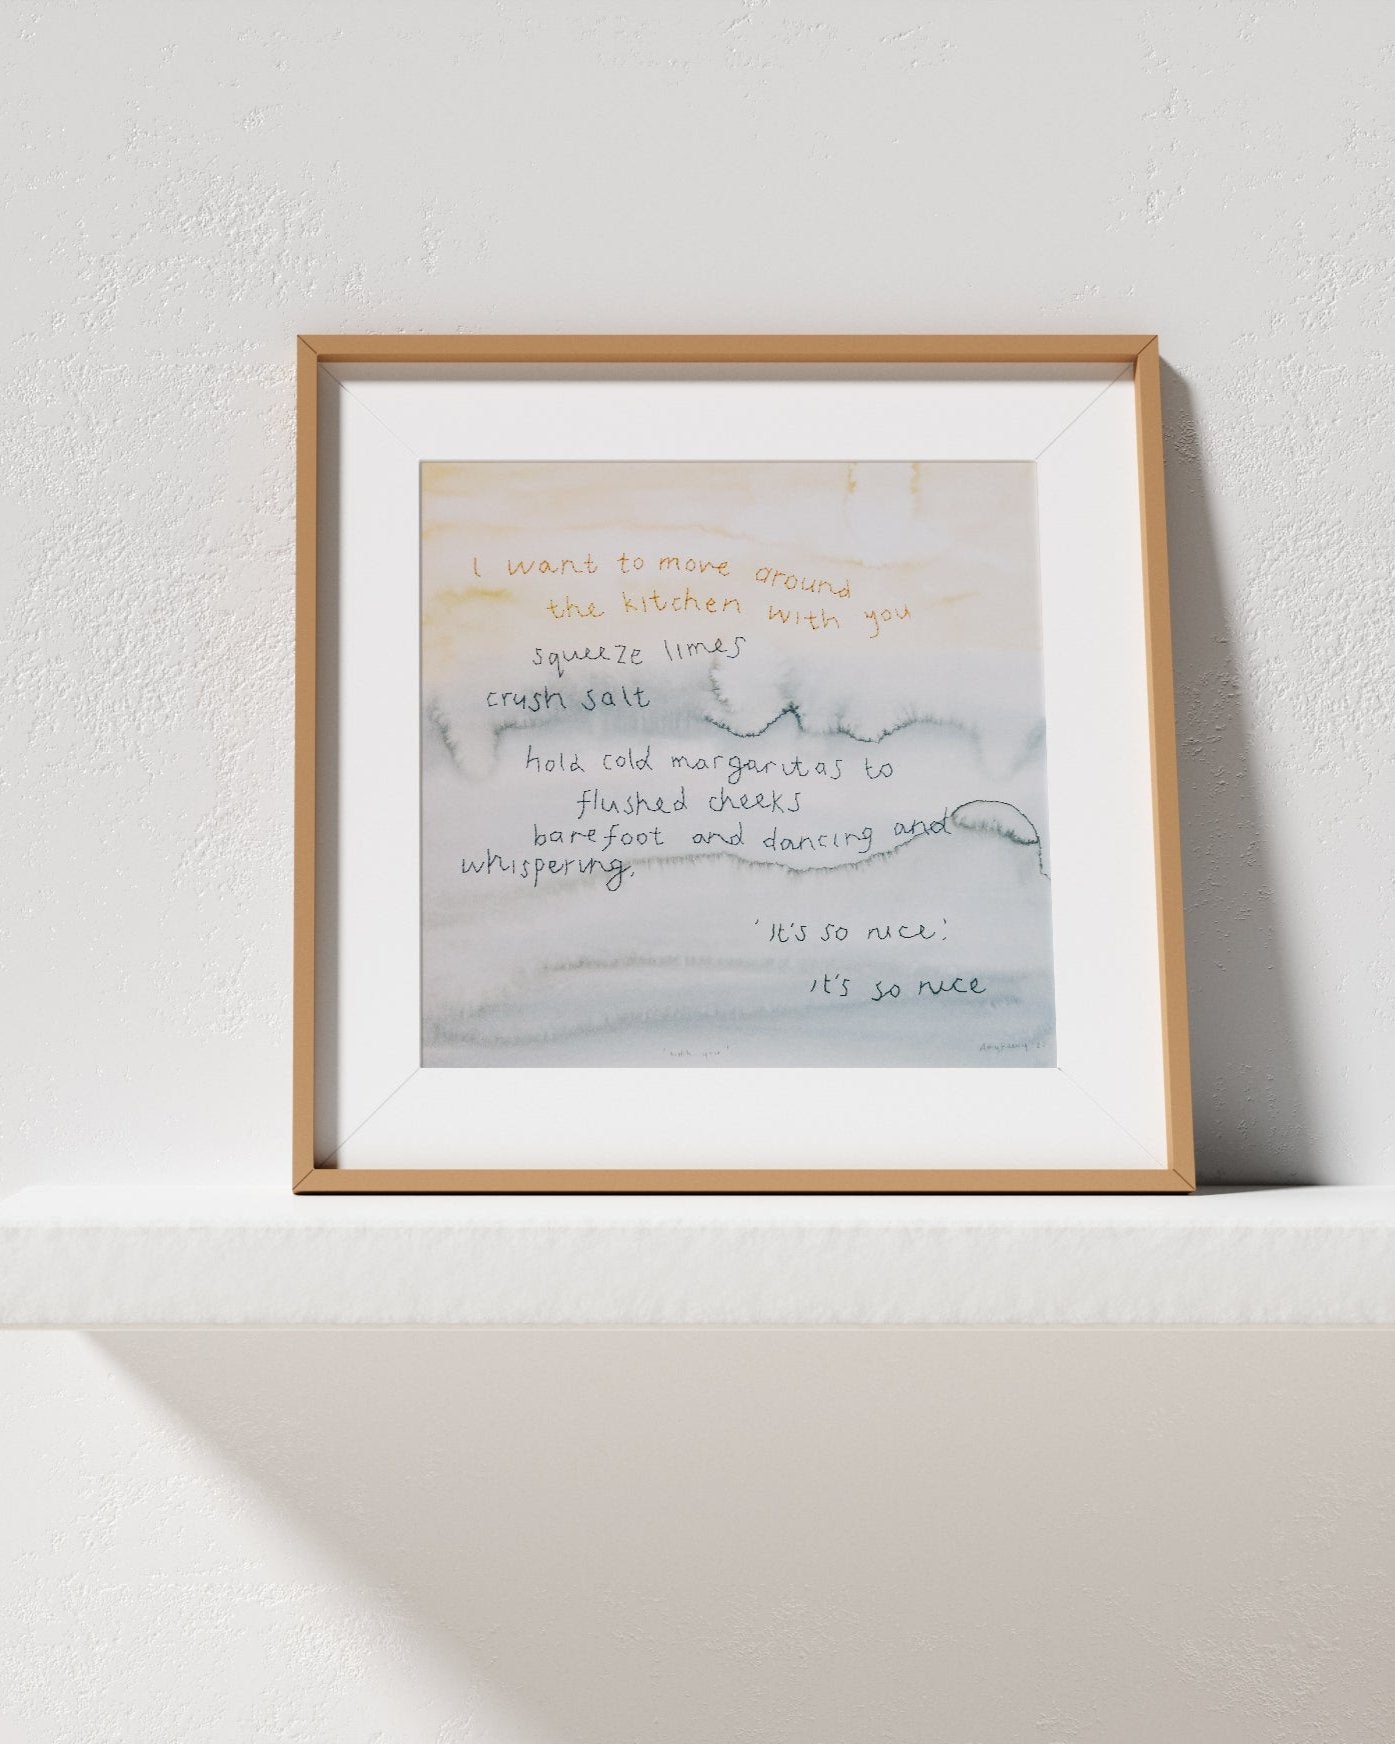 I want to move around
the kitchen with you
squeeze limes
crush salt
hold cold margaritas to
flushed cheeks
barefoot and dancing and
whispering,
'It's so nice.'
It's so nice
'with you'